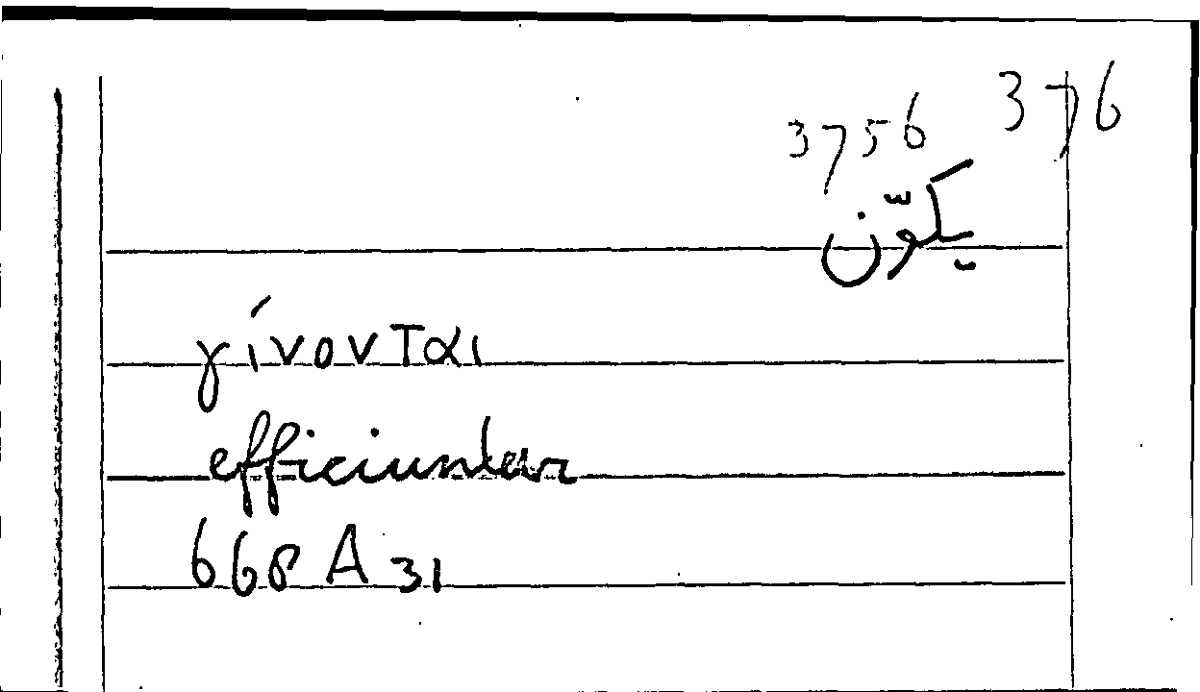 3756 376
يكوّن
γίνονται
efficiuntur
668 A 31